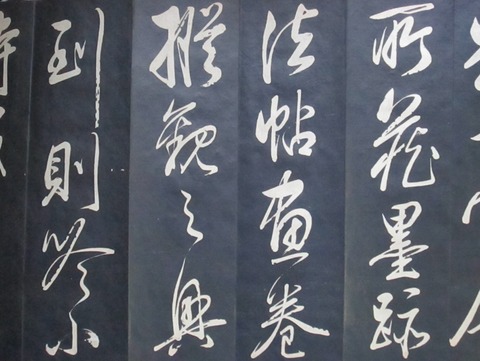 所藏墨跡
法帖畫卷
縱觀之興
到則吟小